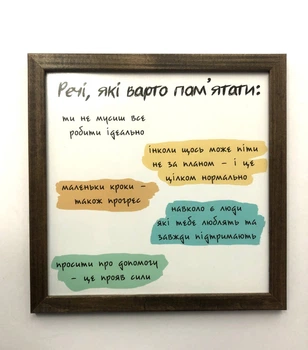 Речі, які варто пам'ятати:
ти не мусиш все
робити ідеально
інколи щось може піти
не за планом – і це
цілком нормально
маленьки кроки –
також прогрес
навколо є люди
які тебе люблять та
завжди підтримають
просити про допомогу
– це прояв сили